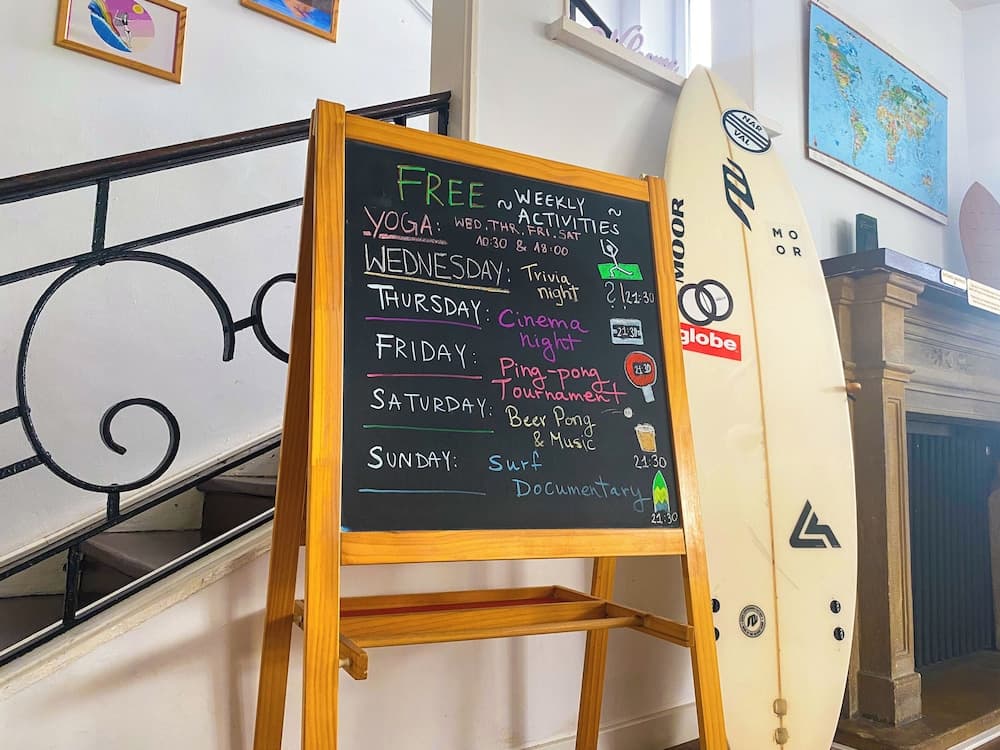 FREE
~ WEEKLY ~
ACTIVITIES
YOGA: WED. THR. FRI. SAT
10:30 & 18:00
WEDNESDAY: Trivia
night
21:30
THURSDAY: Cinema
night
21:30
FRIDAY: Ping-pong
Tournament
21:30
SATURDAY: Beer Pong
& Music
21:30
SUNDAY: Surf
Documentary
21:30
NAR
VAL
MOOR
MO
OR
globe